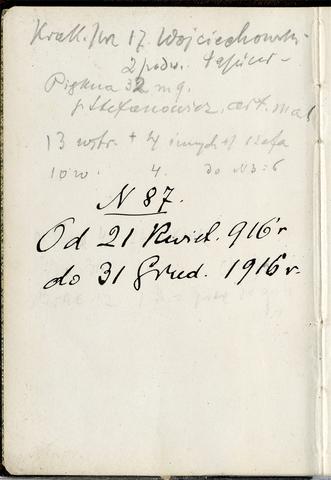 Krak. Prz 17. Wojciechowski
2 podw.
Piękna 32 m 9.
p Stefanowicz. art. mal
13 wstr. + 4 innych
10 w. 4. do N3: 6
N 87.
Od 21 Kwiet. 916 r
do 31 Grud. 1916 r.